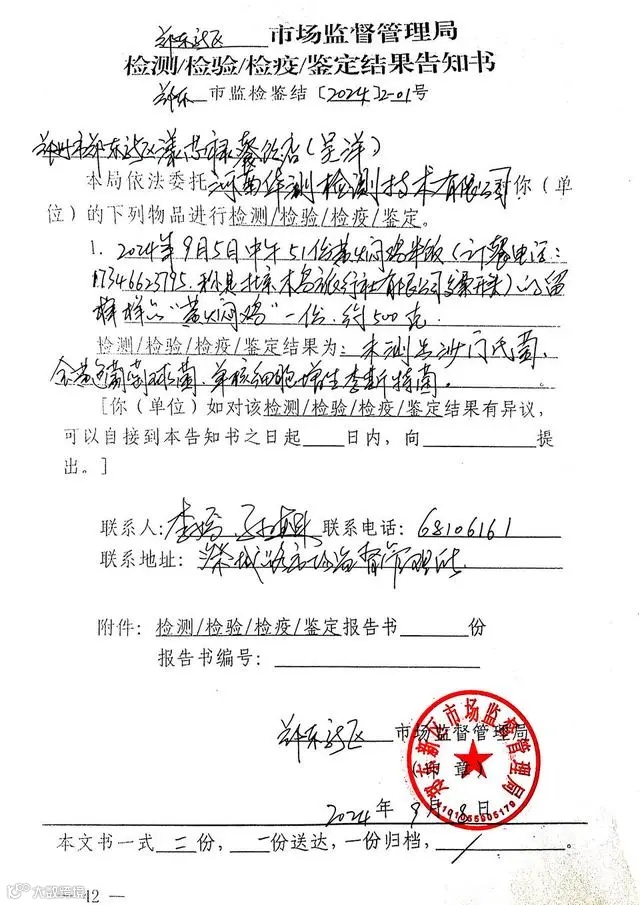 郑东新区 市场监督管理局
检测/检验/检疫/鉴定结果告知书
郑东 市监检鉴结〔2024〕2-01号
郑州市郑东新区 餐饮店(吴洋)
本局依法委托河南华测检测技术有限公司你(单
位)的下列物品进行检测/检验/检疫/鉴定。
1.2024年9月5日中午51份黄焖鸡米饭(订餐电话:
17346623795.称是北京木鸟旅行社有限公司)的留
样样品“黄焖鸡”一份.约500克
检测/检验/检疫/鉴定结果为:未测出沙门氏菌,
金黄色葡萄球菌.单核细胞增生李斯特菌。
[你(单位)如对该检测/检验/检疫/鉴定结果有异议,
可以自接到本告知书之日起 日内,向 提
出。]
联系人:李 联系电话:68106161
联系地址: 路市场监督管理所.
附件:检测/检验/检疫/鉴定报告书 份
报告书编号:
郑东新区 市场监督管理局
(印章)
郑东新区市场监督管理局
2024年9月8日
本文书一式二份,一份送达,一份归档,/。
— 12 —